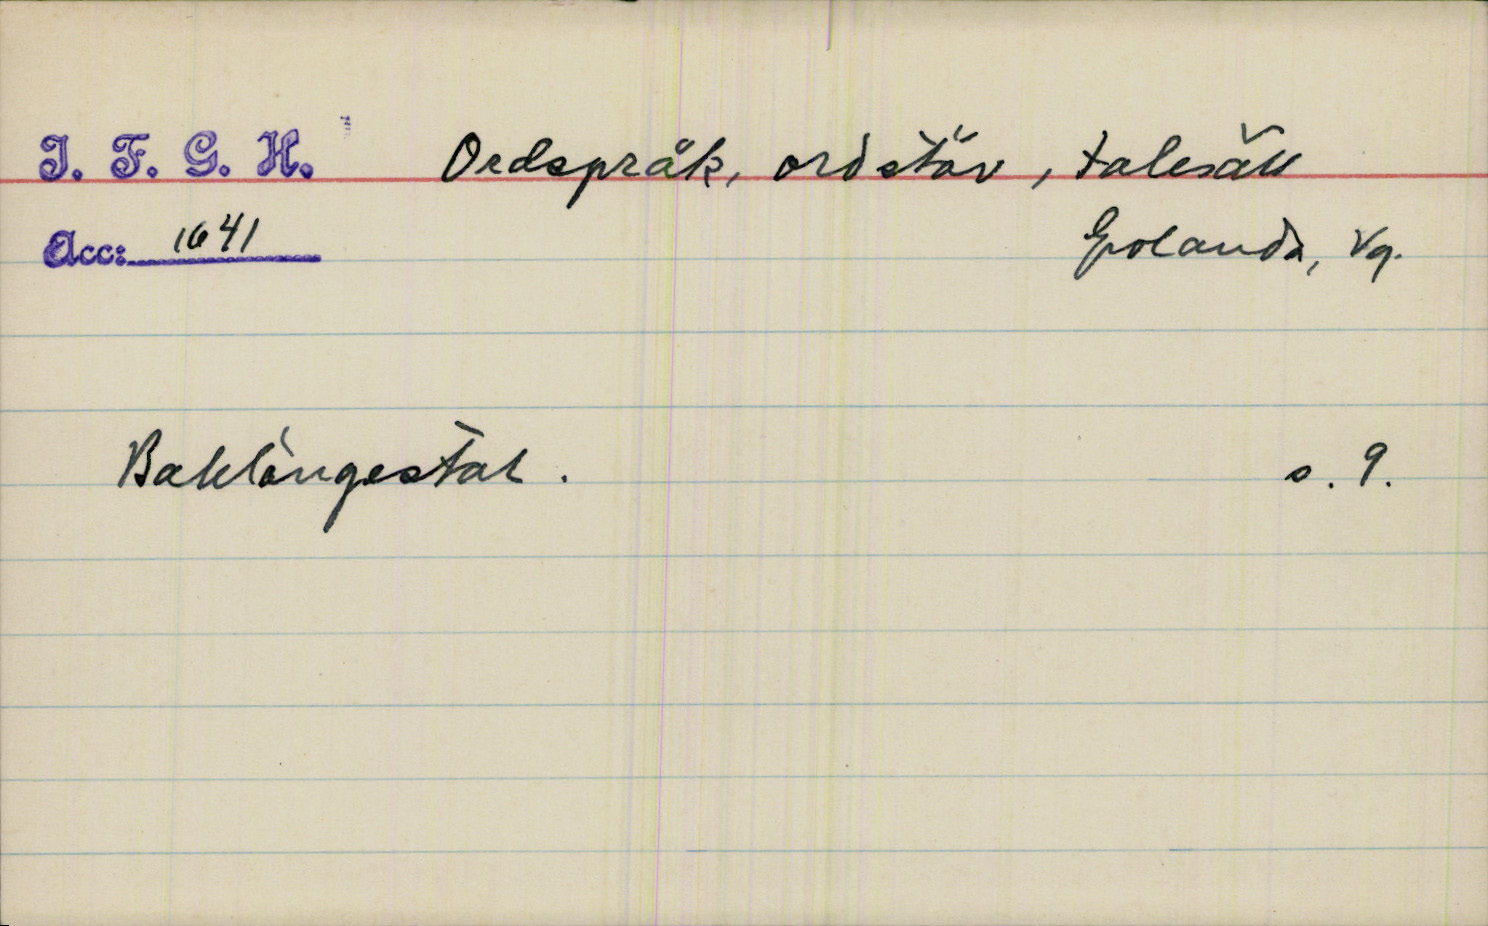 I. F. G. H. Ordspråk, ordstäv, talesätt
Acc: 1641 Grolanda, Vg.
Baklängestal. s. 9.